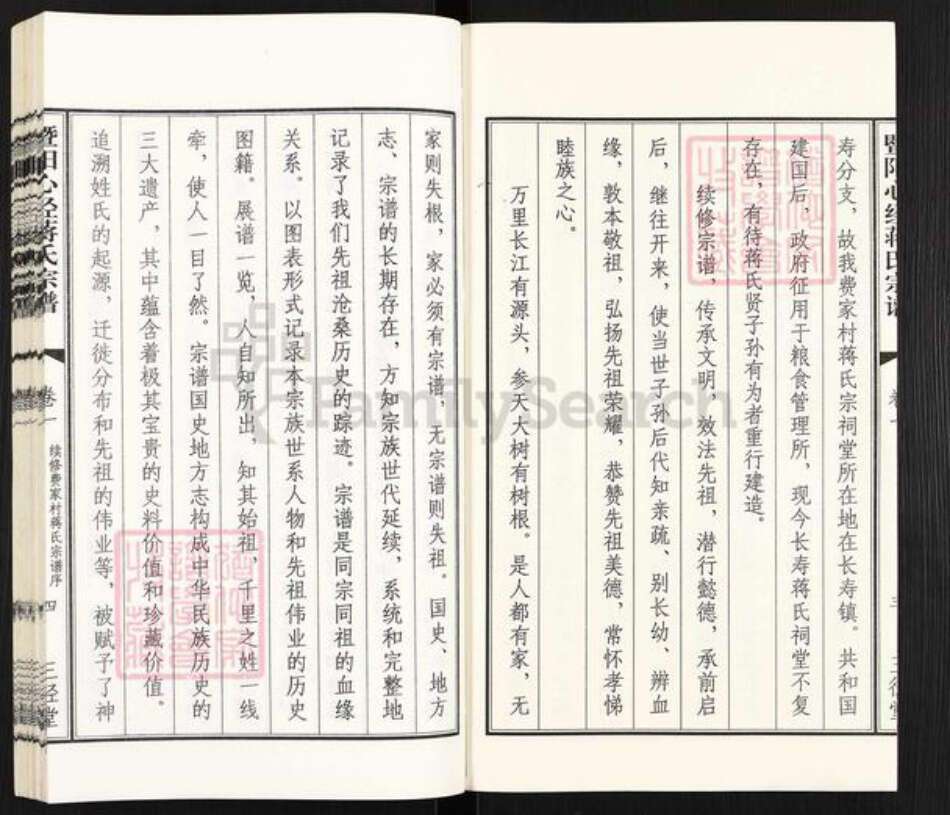 寿分支，故我费家村蒋氏宗祠堂所在地在长寿镇。共和国
建国后，政府征用于粮食管理所，现今长寿蒋氏祠堂不复
存在，有待蒋氏贤子孙有为者重行建造。
续修宗谱，传承文明，效法先祖，潜行懿德，承前启
后，继往开来，使当世子孙后代知亲疏、别长幼、辨血
缘，敦本敬祖，弘扬先祖荣耀，恭赞先祖美德，常怀孝悌
睦族之心。
万里长江有源头，参天大树有树根。是人都有家，无
家则失根，家必须有宗谱，无宗谱则失祖。国史、地方
志、宗谱的长期存在，方知宗族世代延续，系统和完整地
记录了我们先祖沧桑历史的踪迹。宗谱是同宗同祖的血缘
关系。以图表形式记录本宗族世系人物和先祖伟业的历史
图籍。展谱一览，人自知所出，知其始祖，千里之姓一线
牵，使人一目了然。宗谱国史地方志构成中华民族历史的
三大遗产，其中蕴含着极其宝贵的史料价值和珍藏价值。
追溯姓氏的起源，迁徙分布和先祖的伟业等，被赋予了神
蒋氏宗谱
卷一
续修费家村蒋氏宗谱序
四
FamilySearch